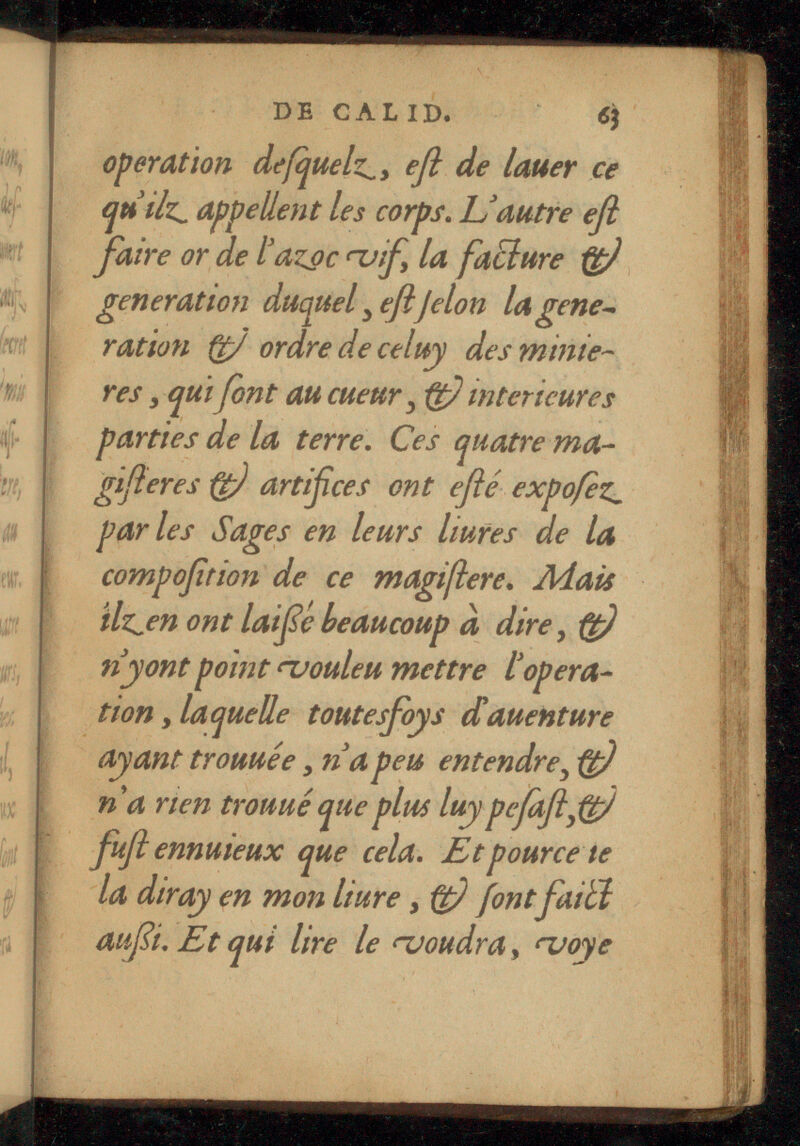 DE CALID. 63
operation deſquelz, eſt de lauer ce
qu'ilz appellent les corps. L'autre eſt
faire or de l'azoc vif, la facture &
generation duquel, eſt ſelon la gene-
ration & ordre de celuy des minie-
res, qui ſont au cueur, & interieures
parties de la terre. Ces quatre ma-
giſteres & artifices ont eſté expoſez
par les Sages en leurs liures de la
compoſition de ce magiſtere. Mais
ilz en ont laiſſé beaucoup à dire, &
n'y ont point vouleu mettre l'opera-
tion, laquelle toutesfoys d'auenture
ayant trouuée, n'a peu entendre, &
n'a rien trouué que plus luy peſaſt, &
fuſt ennuieux que cela. Et pource ie
la diray en mon liure, & ſont faict
auſſi. Et qui lire le voudra, voye